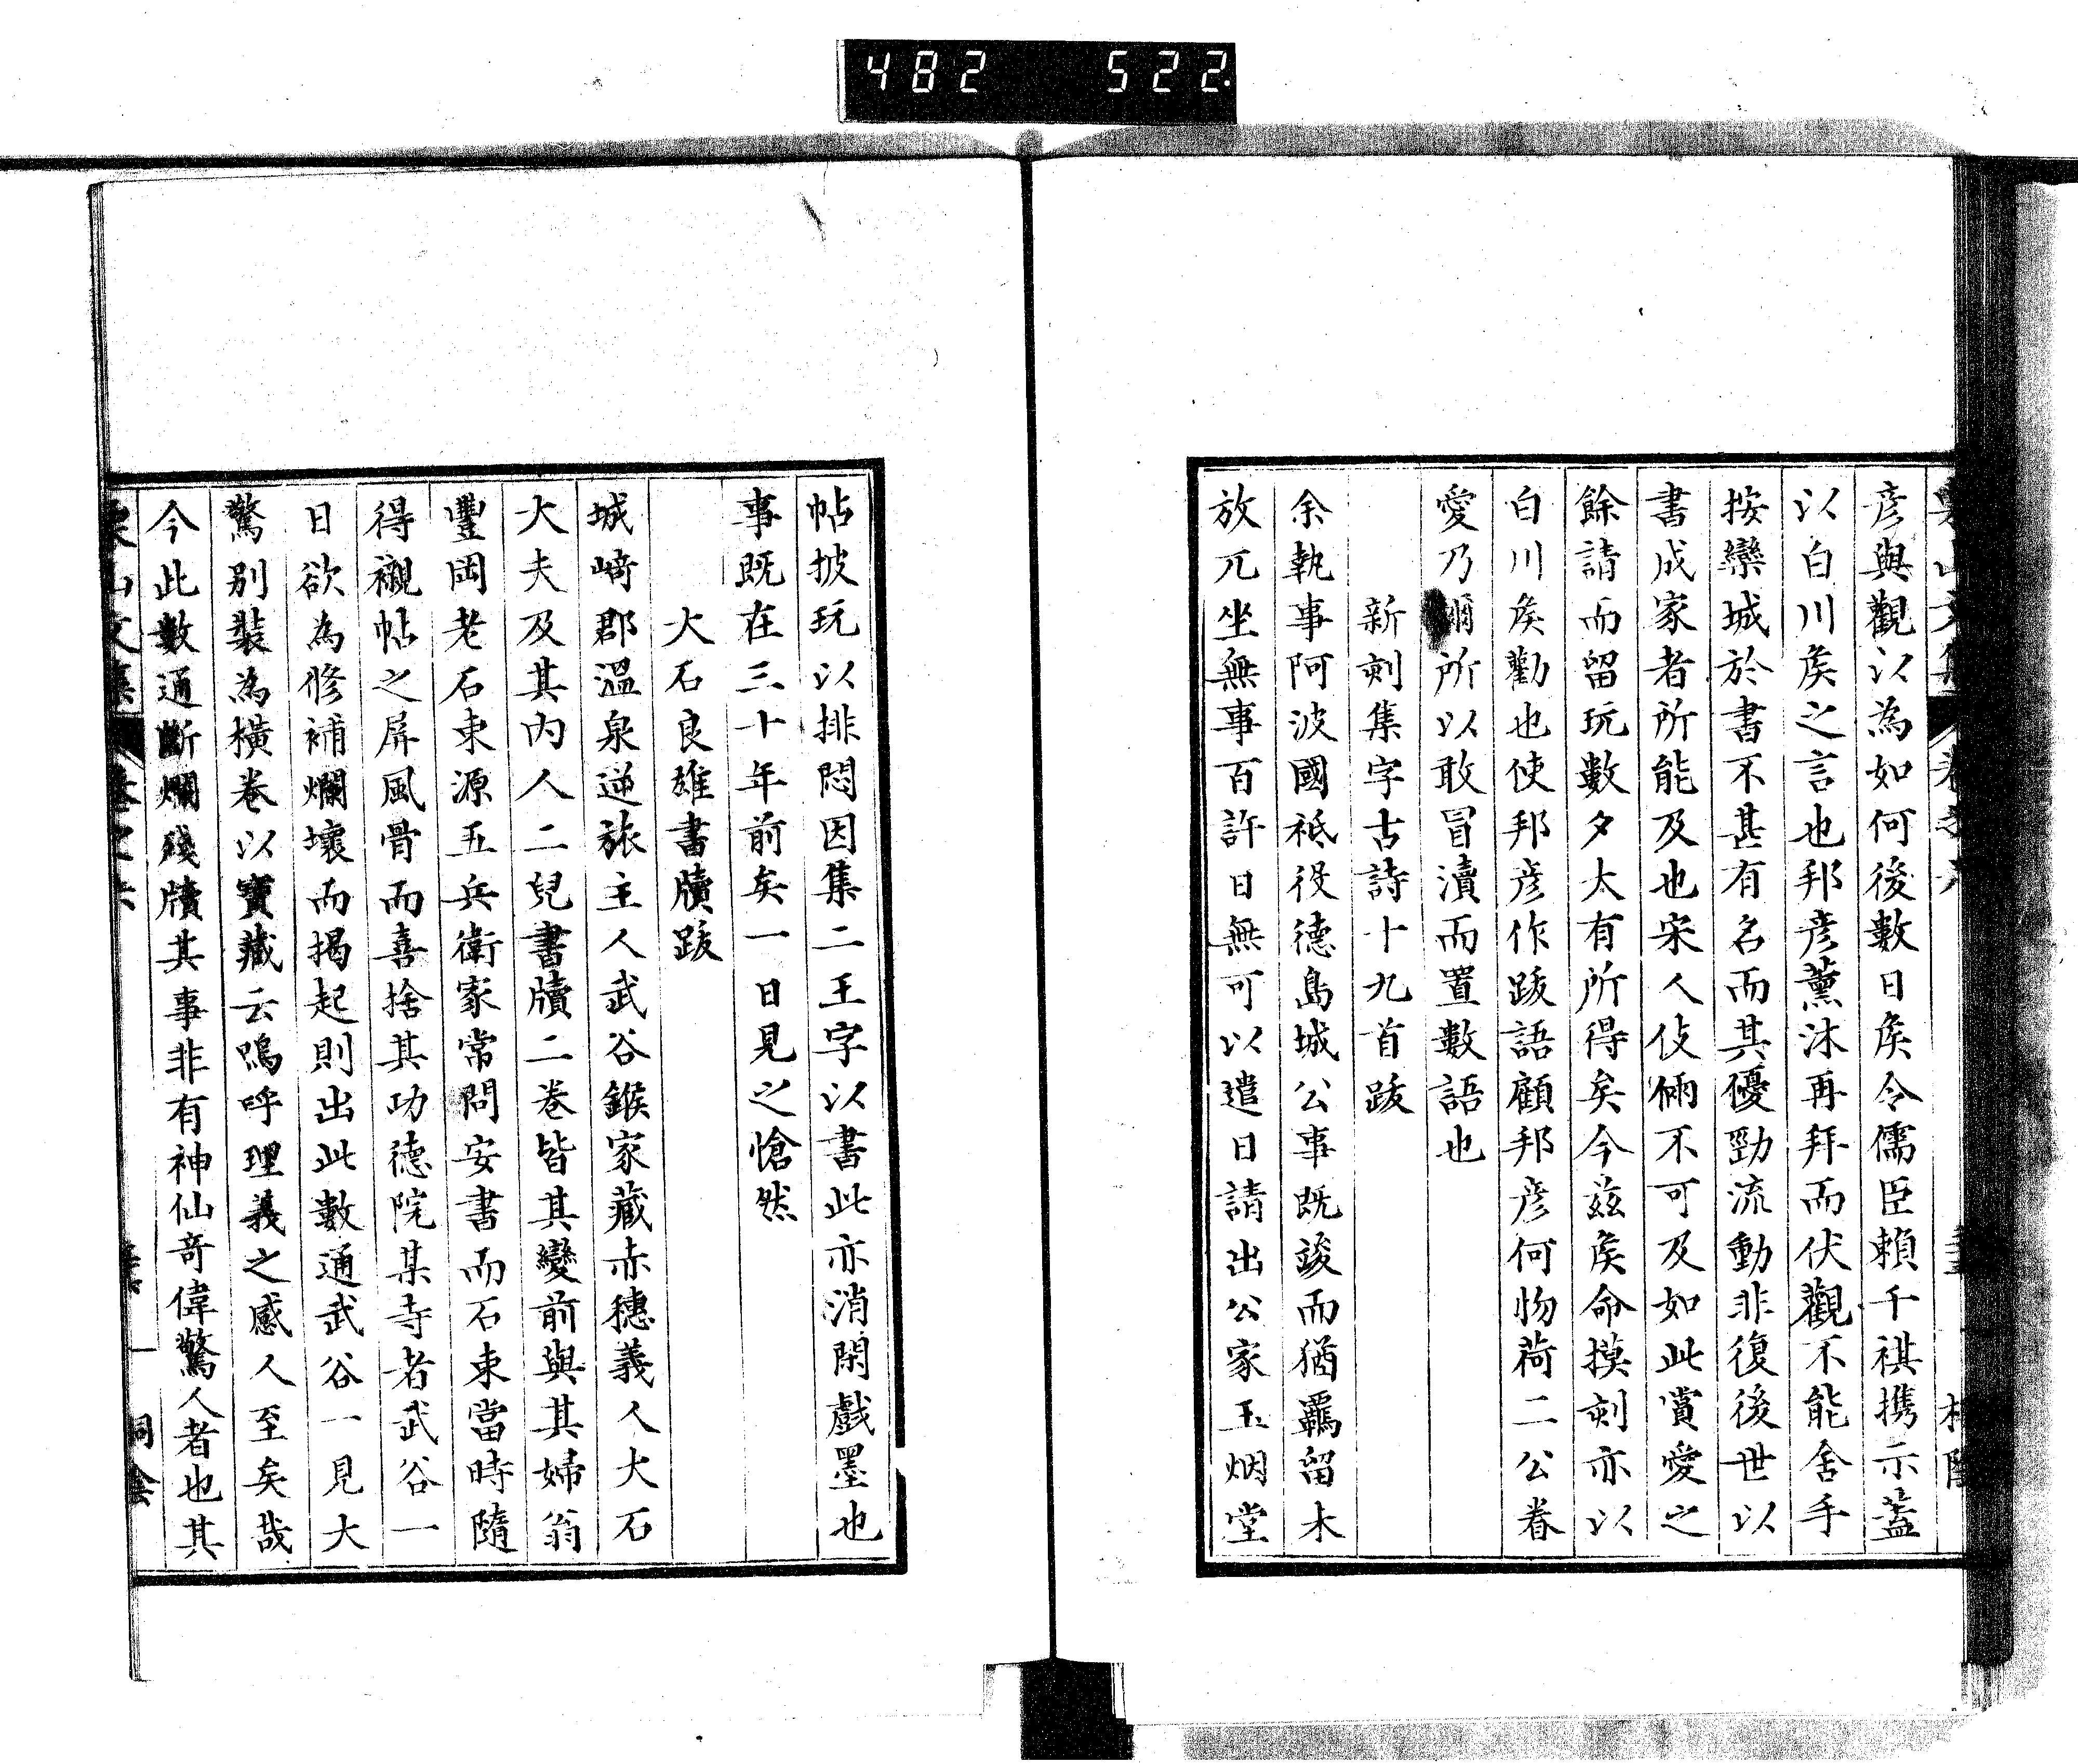 482 522
彦與觀以為如何後數日矦令儒臣賴千祺携示蓋
以白川矦之言也邦彦薰沐再拜而伏觀不能舍手
按欒城於書不甚有名而其優勁流動非復後世以
書成家者所能及也宋人伎倆不可及如此賞愛之
餘請而留玩數夕太有所得矣今茲矦命摸刻亦以
白川矦勸也使邦彦作跋語顧邦彦何物荷二公眷
愛乃爾所以敢冒瀆而置數語也
新刻集字古詩十九首跋
余執事阿波國祗役德島城公事既竣而猶羈留木
放兀坐無事百許日無可以遣日請出公家玉烟堂
帖披玩以排悶因集二王字以書此亦消閑戲墨也
事既在三十年前矣一日見之愴然
大石良雄書牘跋
城崎郡溫泉逆旅主人武谷鍭家藏赤穗義人大石
大夫及其內人二兒書牘二卷皆其變前與其婦翁
豐岡老石東源五兵衛家常問安書而石東當時隨
得襯帖之屏風骨而喜捨其功德院某寺者武谷一
日欲為修補爛壞而揭起則出此數通武谷一見大
驚別裝為橫卷以寶藏云嗚呼理義之感人至矣哉
今此數通斷爛殘牘其事非有神仙奇偉驚人者也其
栗山文集 卷之六